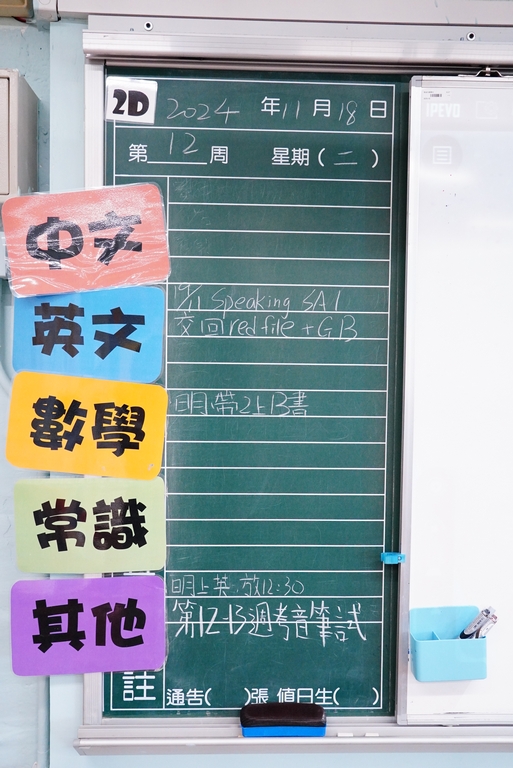 2D 2024 年 11 月 18 日
第 12 周 星期(二)
中文
英文
19/11 Speaking SA1
交回 red file + GB
數學
明帶2上B書
常識
其他
明上英 放12:30
第12-13週考音筆試
註 通告( )張 值日生( )
IPEVO